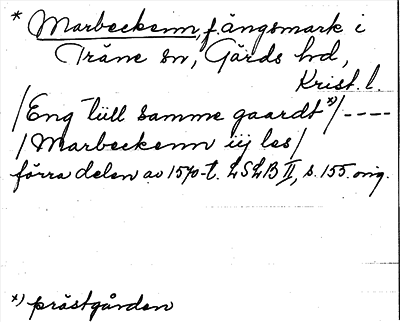 * Marbeckenn, f. ängsmark i
Träne sn, Gärds hd,
Krist. l.
/Eng tüll samme gaardt *)/ ----
/Marbeckenn iij les/
förra delen av 1570-t. LSLB II, s. 155. orig.
*) prästgården